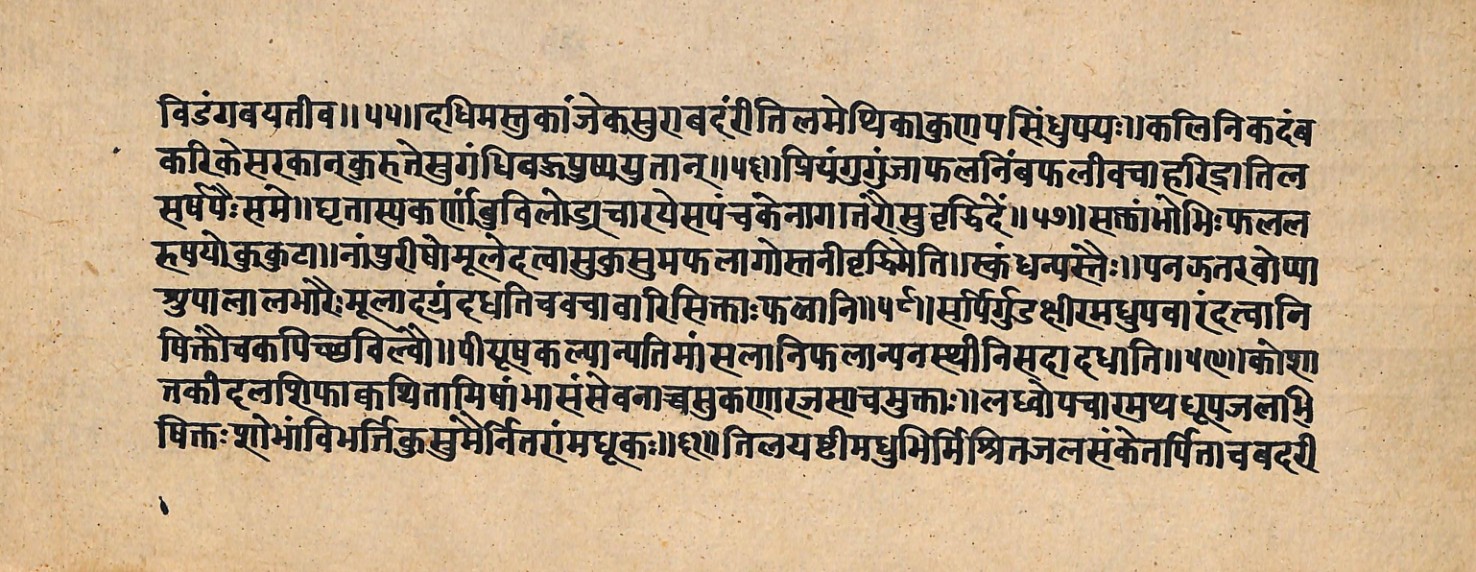 विडंगवयतीव॥५५॥दधिमस्तुकांजेकसुराबदंरीतिलमेथिकाकुणपसिंधुपयः॥कलिनिकदंब
करिकेसरकान्कुरुतेसुगंधिबद्धपुष्पयुतान्॥५६॥प्रियंगुगुंजाफलनिंबफलीवचाहरिद्रातिल
सर्षपैःसमे॥घृतास्पकर्णांबुविलोड्राचारयेसपंचकेनागातरौसुवृद्धिदें॥५७॥सक्तांभोभिःफलल
रुषयोकुकुटा॥नांपुरीषोमूलंदत्वासुकुसुमफलागोस्तनीवृद्धिमेति॥स्कंधन्पस्त्तैः॥पनकतरवोप्पा
श्रुपालालभारैःमूलादग्रंदधतिचवचावारिसिक्ताःफलानि॥५८॥सर्पिर्गुडक्षीरमधुपवारंदत्वानि
षिक्तौचकपिच्छविल्वौ॥पीयूषकल्पान्पतिमांसलानिफलान्पनस्थीनिसदादधाति॥५९॥कोशा
तकीदलशिफाक्वथितामिषांभासंसेवनाच्चसुकणारजसाचमुक्ताः॥लध्वोपचारमप्यधूपजलाभि
षिक्तःशोभांविभर्त्तिकुसुंमैर्नितरांमधूकः॥६०॥तिलयष्टीमधुभिर्मिश्रितजलसंकेतर्पिताचबदरी